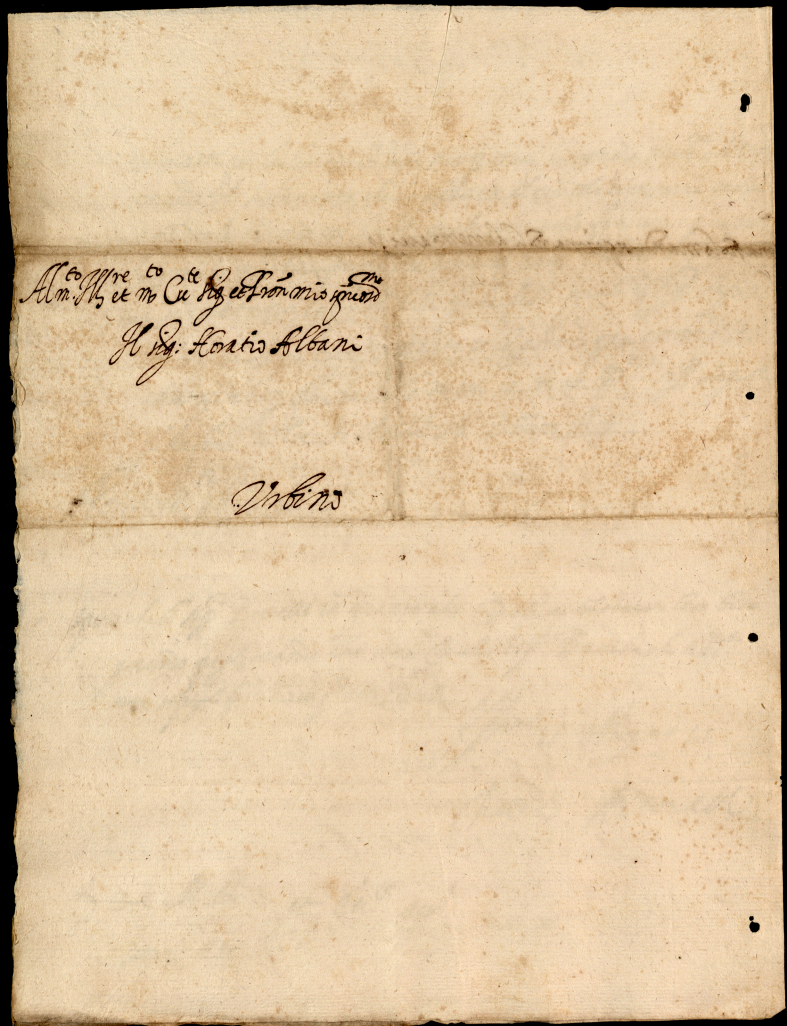 Al m.to Ill.re et m.to Ecc.te Sig.r et Pron mio
Il Sig: Horatio Albani
Urbino